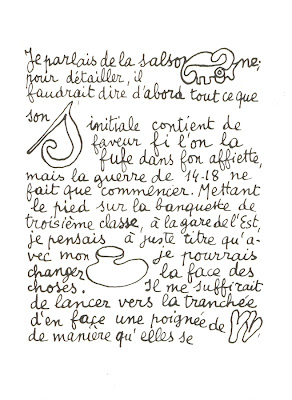 Je parlais de la salso ne;
pour détailler, il
faudrait dire d'abord tout ce que
son S
initiale contient de
faveur si l'on la
fufe dans son affiette,
mais la guerre de 14-18 ne
fait que commencer. Mettant
le pied sur la banquette de
troisième classe, à la gare de l'Est,
je pensais à juste titre qu'a-
vec mon je pourrais
changer la face des
choses. Il me suffirait
de lancer vers la tranchée
d'en face une poignée de
de manière qu'elles se